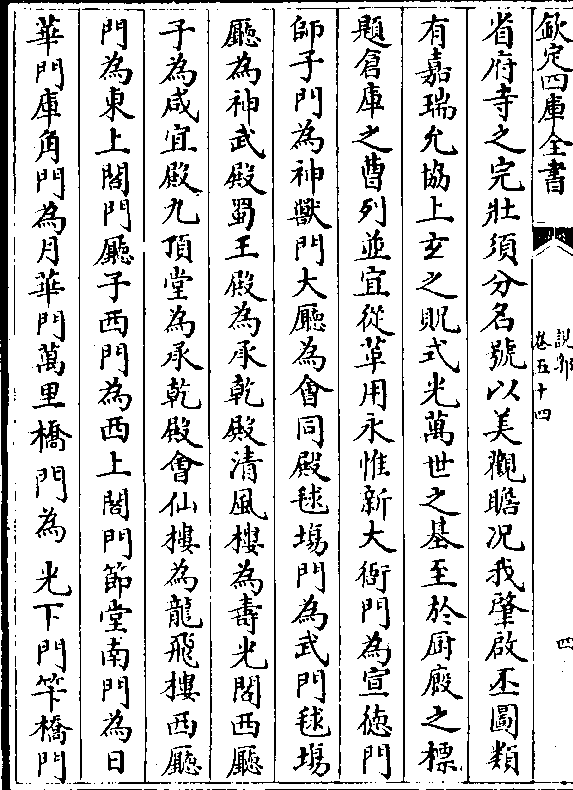 欽定四庫全書
說郛
卷五十四
四
省府寺之完壯須分名號以美觀瞻况我肇啟丕圖類
有嘉瑞允協上玄之貺式光萬世之基至於厨廐之標
題倉庫之曹列並宜從革用永惟新大衙門為宣徳門
師子門為神獸門大廳為會同殿毬塲門為武門毬塲
廳為神武殿蜀王殿為承乾殿清風樓為壽光閣西廳
子為咸宜殿九頂堂為承乾殿會仙樓為龍飛樓西廳
門為東上閤門廳子西門為西上閤門節堂南門為日
華門庫角門為月華門萬里橋門為 光下門笮橋門